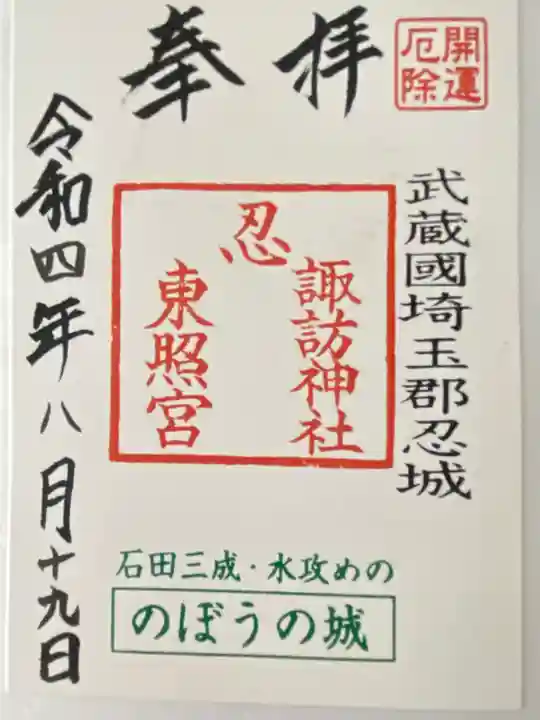 開運
厄除
奉拝
武蔵國埼玉郡忍城
忍
諏訪神社
東照宮
令和四年八月十九日
石田三成・水攻めの
のぼうの城